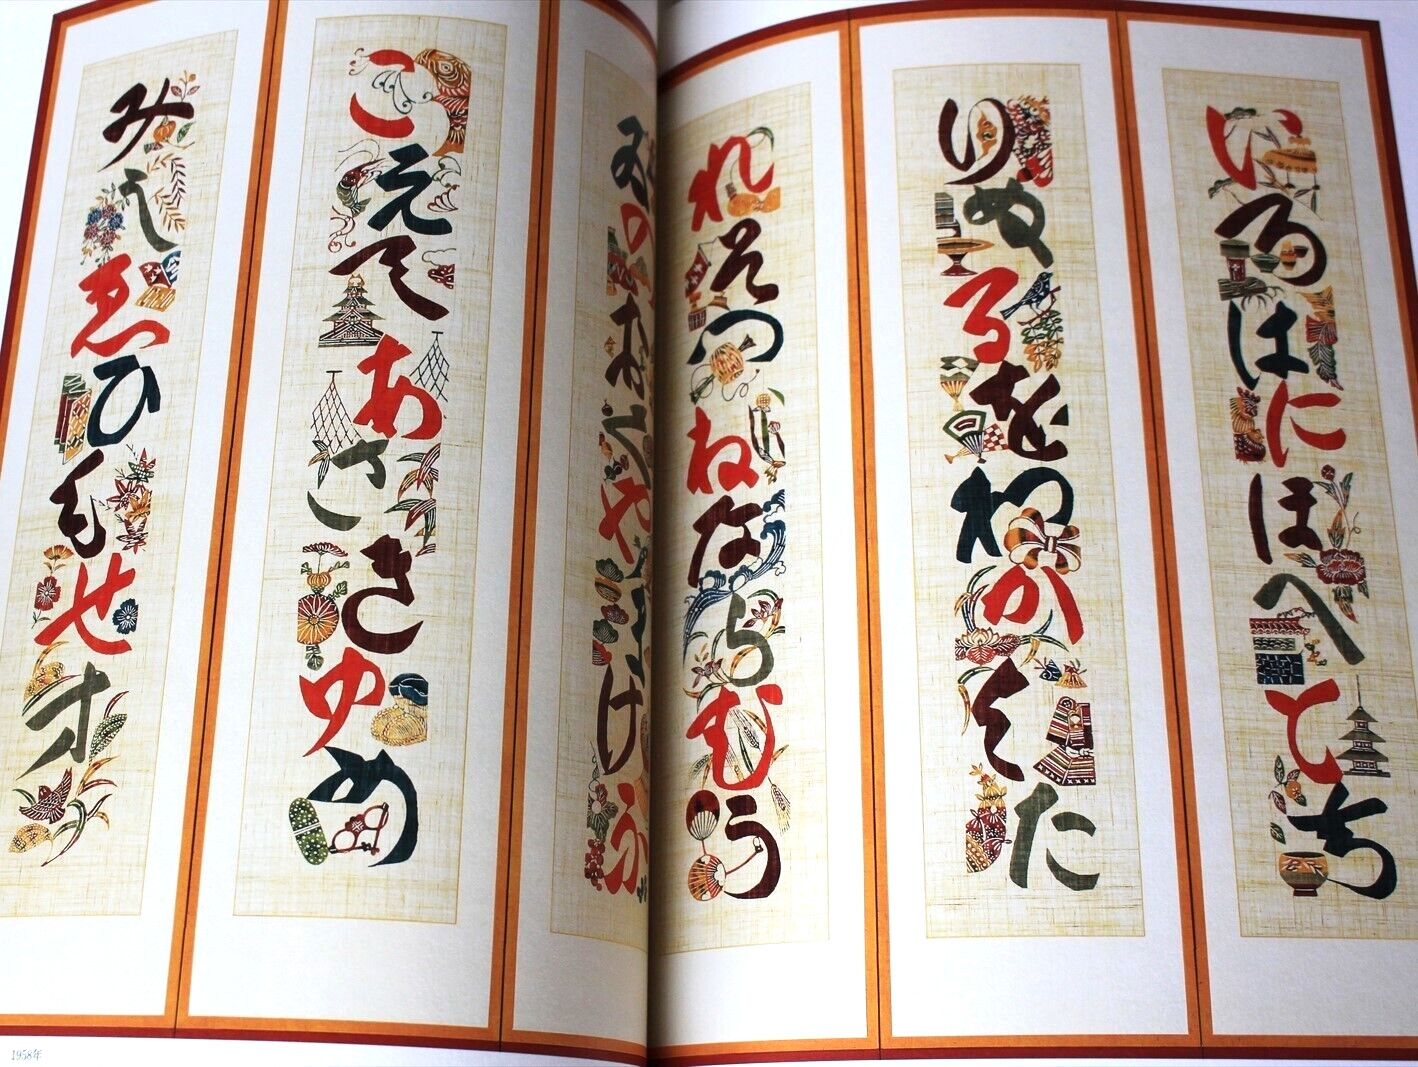 いろはにほへとち
りぬるをわかよた
れそつねならむう
ゐのおくやまけふ
こえてあさきゆめ
みしゑひもせす
1958年